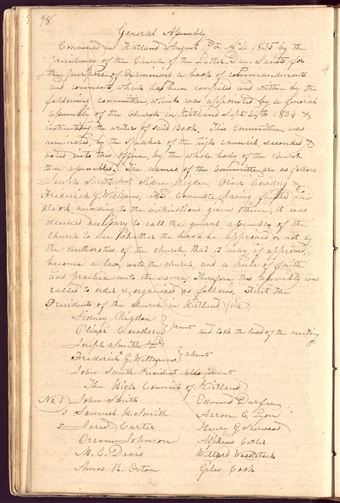 98
General Assembly
Convened in Kirtland August 17th A.D. 1835 by the
Presidency of the Church of the Latter Day Saints, for
the purpose of examining a book of commandments
and covenants which has been compiled and written by the
following committee, which was appointed by a general
assembly of the Church in Kirtland Sept 24th 1834 to
the writer of said Book. This committee was
nominated by the Speaker of the high council, seconded &
voted into this office, by the whole body of the church
then assembled. The names of the Committee are as follows
Joseph Smith Jr Sidney Rigdon Oliver Cowdery &
Frederick G. Williams, This Committe having finished said
Book according to the instructions given them, it was
deemed necessary to call the general assembly of the
church to see whether the book be approved or not by
the authorities of the church that it may, if approved,
become a law unto the church, and a rule of faith
and practice unto the same. Therefore, this assembly was
called to order & organized as follows. First the
Presidents of the church in Kirtland (viz
Sidney Rigdon
Oliver Cowdery } present and took the lead of the meeting
Joseph Smith Jr
Frederick G. Williams } absent
John Smith President also present
The High Council of Kirtland
No 1 John Smith Edmund Durfee
s Samuel H. Smith Aaron C. Lyon
s Jared Carter Henry G. Sherwood
Orson Johnson Alpheus Cutler
M. C. Davis Willard Woodstock
Amos R. Orton Giles Cook